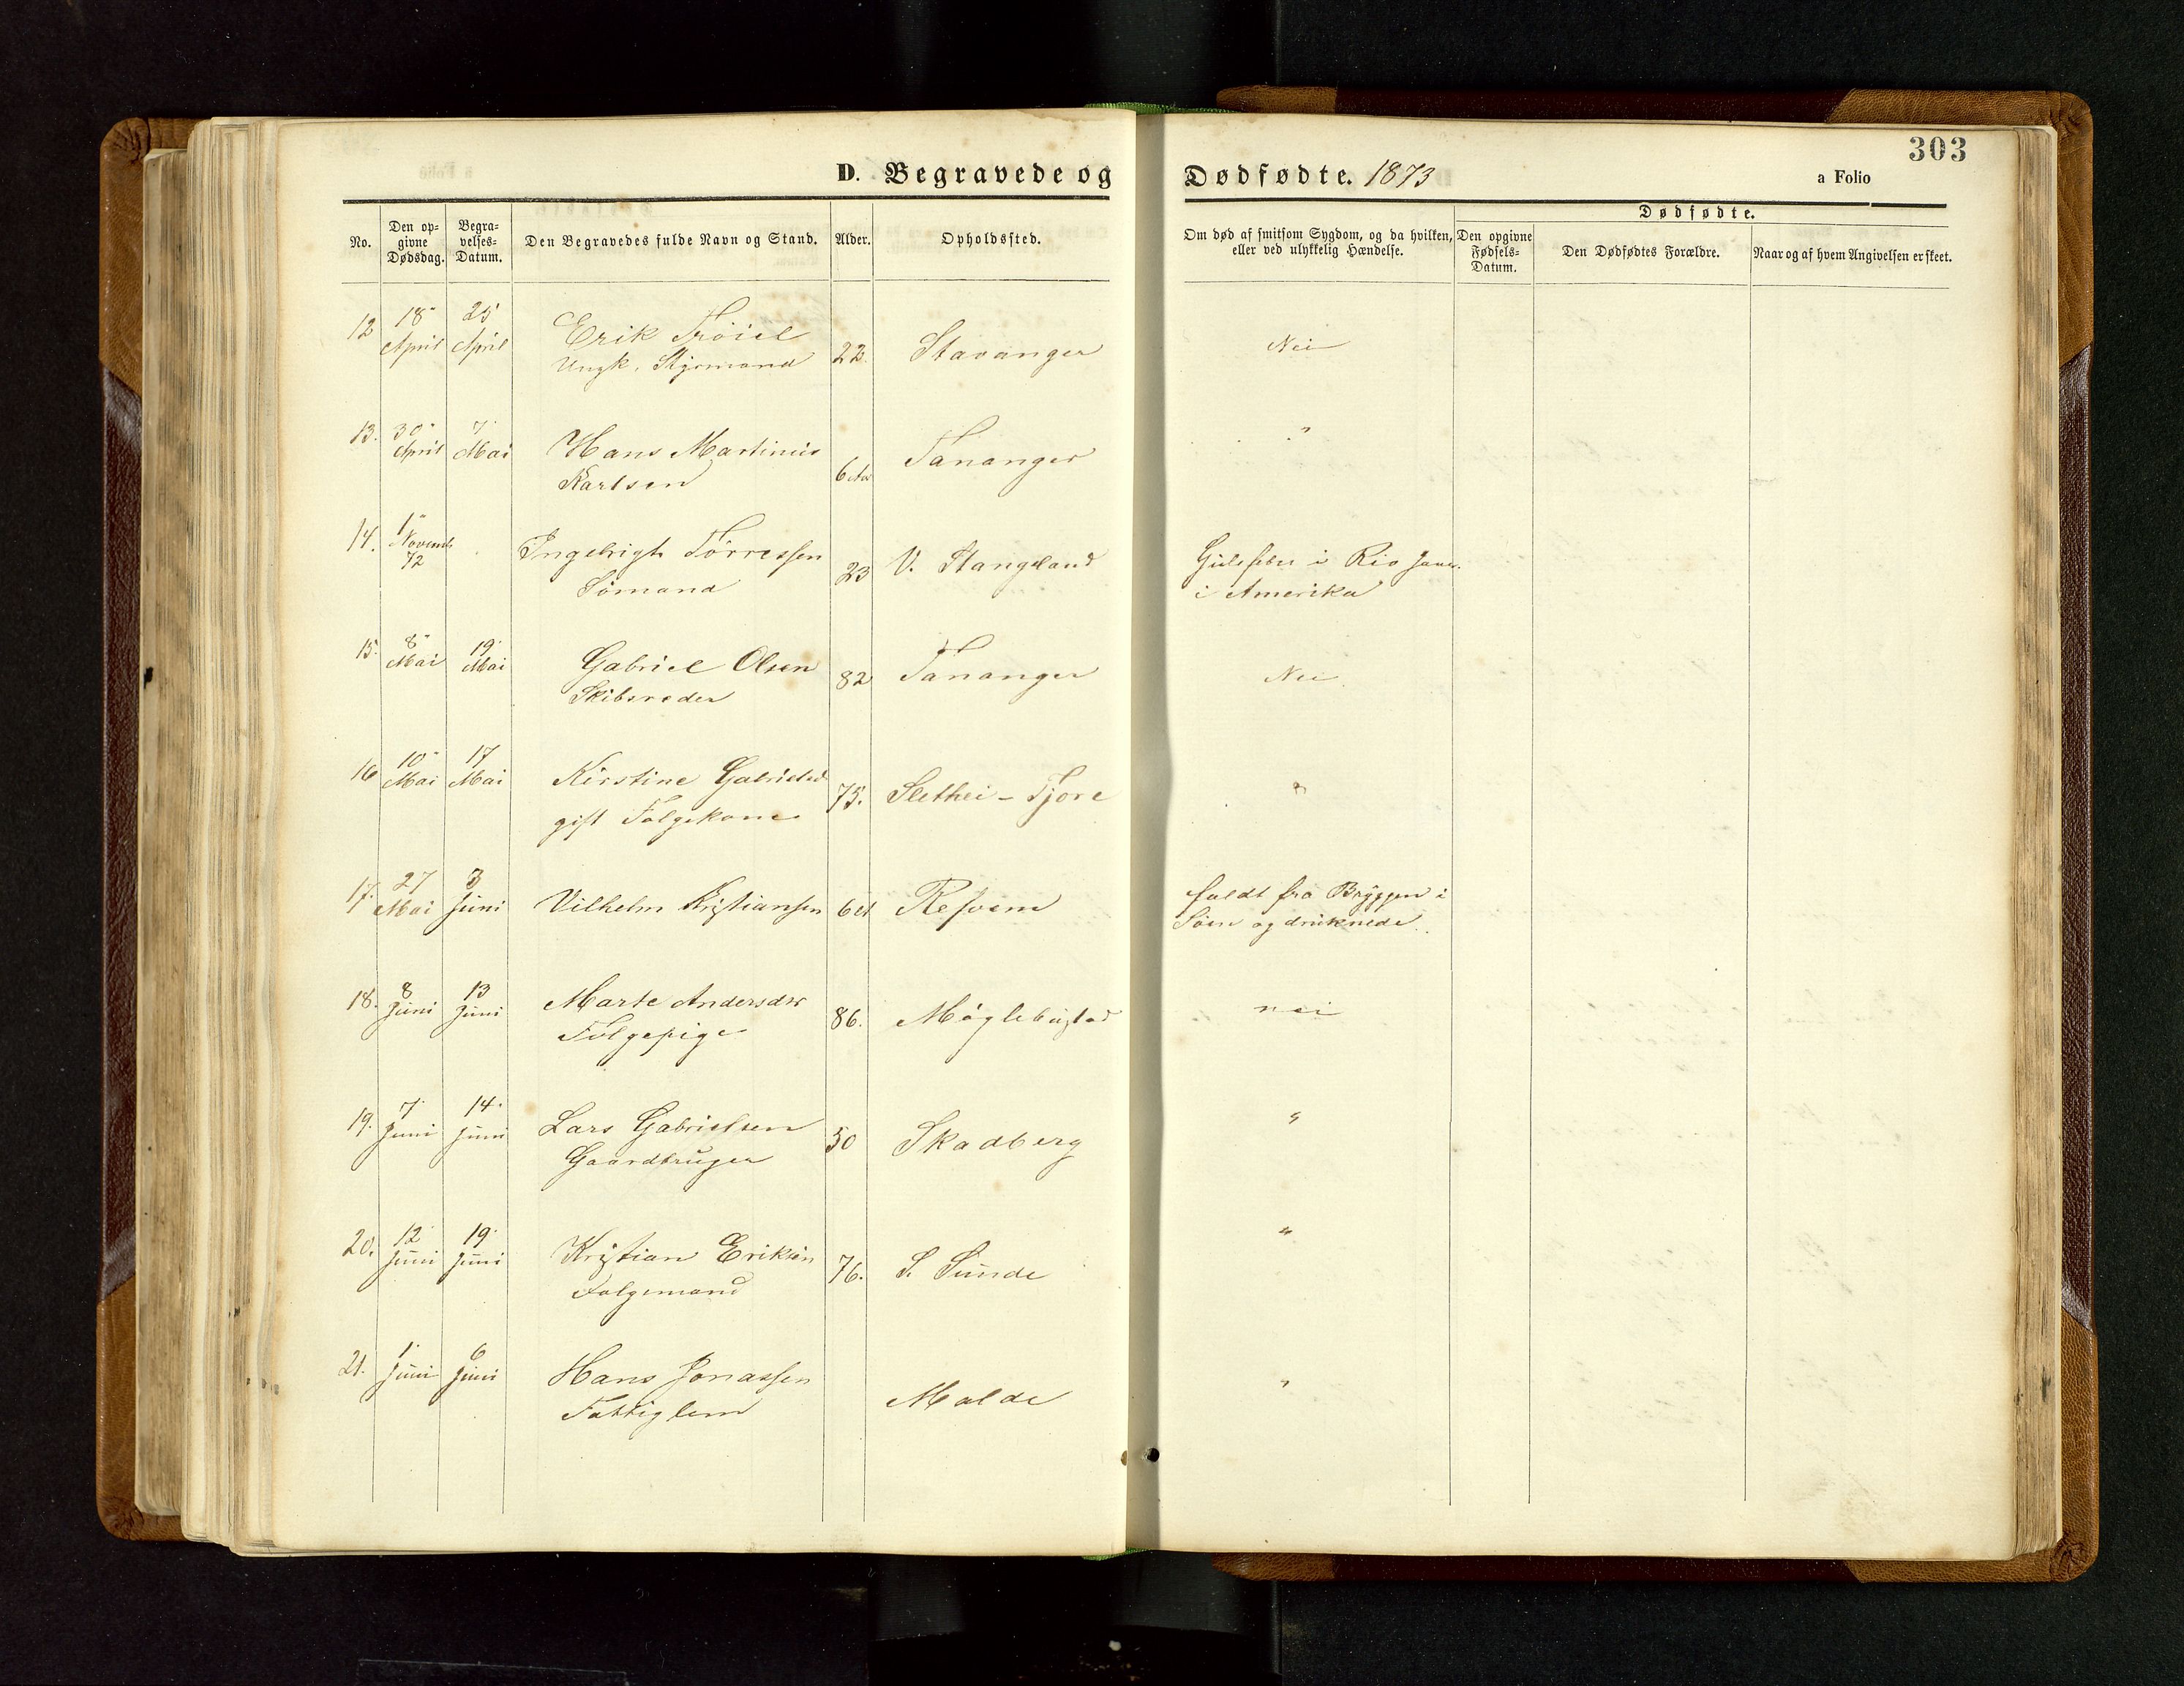 303
D. Begravede og Dødfødte. 1873
a Folio
No.
Den op-
givne
Dødsdag.
Begra-
velses-
Datum.
Den Begravedes fulde Navn og Stand.
Alder.
Opholdssted.
Om død af smitsom Sygdom, og da hvilken,
eller ved ulykkelig Hændelse.
Dødfødte.
Den opgivne
Fødsels-
Datum.
Den Dødfødtes Forældre.
Naar og af hvem Angivelsen er skeet.
12 18" April 25 April Erik Tröiel 22. Stavanger Nei
Ungk. Styrmand
13. 30" April 7. Mai Hans Martinius Tananger "
Karlsen
14. 1" Novemb 72 Ingebrigt Törressen 23 V. Stangeland Guulfeber i Rio Jan.
Sömand i Amerika
15. 8" Mai 19. Mai Gabriel Olsen 82 Tananger Nei
Skibsreder
16 10" Mai 17 Mai Kirstine Gabrielsd 75. Slethei - Tjore "
gift Folgekone
17. 27 Mai 3 Juni Vilhelm Kristiansen Refsvem faldt fra Bryggen i
Söen og druknede.
18. 8 Juni 13 Juni Marte Andersdtr 86. Möglebustad nei
Folgepige
19. 7. Juni 14. Juni Lars Gabrielsen 50 Skadberg "
Gaardbruger
20. 12 Juni 19. Juni Kristian Eriksen 76. S. Sunde "
Folgemand
21. 1. Juni 6 Juni Hans Jonassen Malde "
Fattiglem